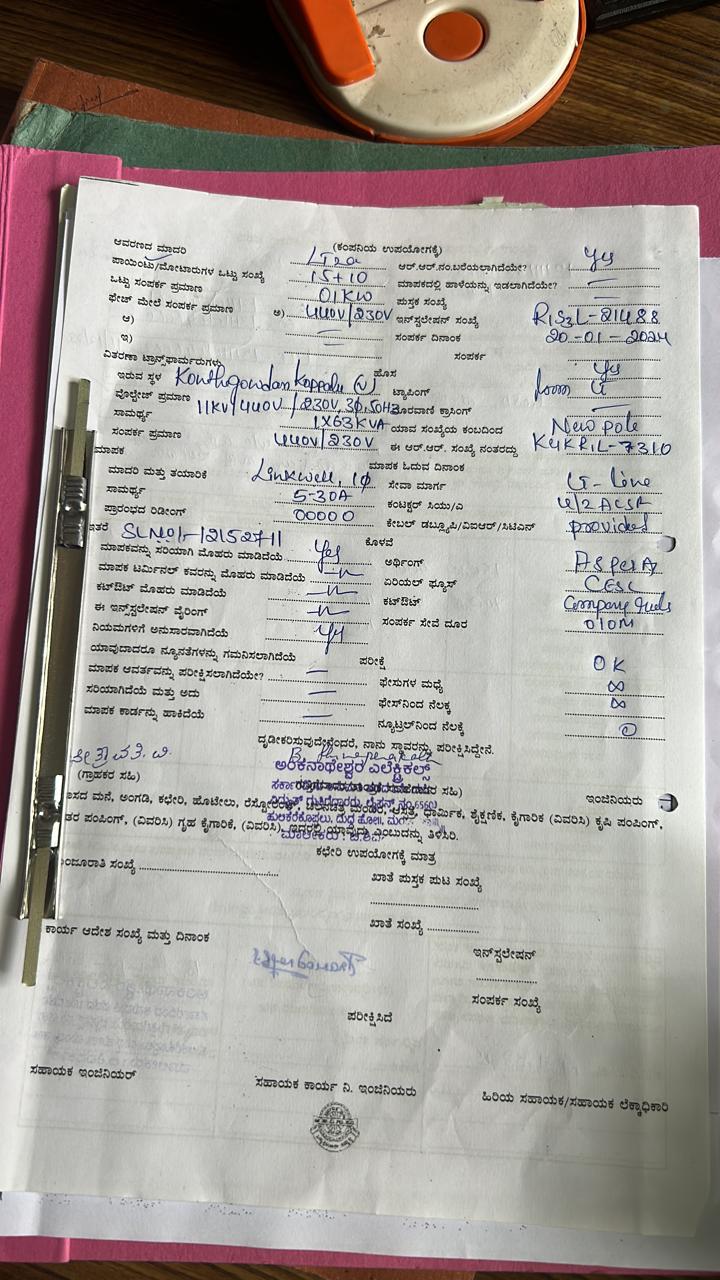 (ಕಂಪನಿಯ ಉಪಯೋಗಕ್ಕೆ)
ಆವರಣದ ಮಾದರಿ ಆರ್.ಆರ್.ನಂ.ಬರೆಯಲಾಗಿದೆಯೇ? Yes
ಪಾಯಿಂಟು/ಮೋಟಾರುಗಳ ಒಟ್ಟು ಸಂಖ್ಯೆ 15+10 ಮಾಪಕದಲ್ಲಿ ಹಾಳೆಯನ್ನು ಇಡಲಾಗಿದೆಯೇ? —
ಒಟ್ಟು ಸಂಪರ್ಕ ಪ್ರಮಾಣ 01KW ಪುಸ್ತಕ ಸಂಖ್ಯೆ —
ಫೇಜ್ ಮೇಲೆ ಸಂಪರ್ಕ ಪ್ರಮಾಣ ಅ) 440V/230V ಇನ್‌ಸ್ಟಲೇಷನ್ ಸಂಖ್ಯೆ
ಆ) — ಸಂಪರ್ಕ ದಿನಾಂಕ 20-01-2024
ಇ) ಸಂಪರ್ಕ
ವಿತರಣಾ ಟ್ರಾನ್ಸ್‌ಫಾರ್ಮರುಗಳು ಹೊಸ Yes
ಇರುವ ಸ್ಥಳ (V) ಟ್ಯಾಪಿಂಗ್
ವೋಲ್ಟೇಜ್ ಪ್ರಮಾಣ 11KV/440V/230V, 3Φ, 50HZ ದೂರವಾಣಿ ಕ್ರಾಸಿಂಗ್ —
ಸಾಮರ್ಥ್ಯ 1X63KVA ಯಾವ ಸಂಖ್ಯೆಯ ಕಂಬದಿಂದ New pole
ಸಂಪರ್ಕ ಪ್ರಮಾಣ 440V/230V ಈ ಆರ್.ಆರ್. ಸಂಖ್ಯೆ ನಂತರದ್ದು
ಮಾಪಕ ಮಾಪಕ ಓದುವ ದಿನಾಂಕ
ಮಾದರಿ ಮತ್ತು ತಯಾರಿಕೆ Linkwell, 1Φ ಸೇವಾ ಮಾರ್ಗ Line
ಸಾಮರ್ಥ್ಯ 5-30A ಕಂಟಕ್ಟರ್ ಸಿಯು/ಎ ACSR
ಪ್ರಾರಂಭದ ರಿಡೀಂಗ್ 00000 ಕೇಬಲ್ ಡಬ್ಲ್ಯೂಪಿ/ವಿಐಆರ್/ಸಿಟಿಎನ್ provided
ಇತರೆ ಕೊಳವೆ
ಮಾಪಕವನ್ನು ಸರಿಯಾಗಿ ಮೊಹರು ಮಾಡಿದೆಯೆ Yes ಅರ್ಥಿಂಗ್
ಮಾಪಕ ಟರ್ಮಿನಲ್ ಕವರನ್ನು ಮೊಹರು ಮಾಡಿದೆಯೆ —"— ಏರಿಯಲ್ ಫ್ಯೂಸ್ CESC
ಕಟ್‌ಔಟ್ ಮೊಹರು ಮಾಡಿದೆಯೆ —"— ಕಟ್‌ಔಟ್ Company
ಈ ಇನ್‌ಸ್ಟಲೇಷನ್ ವೈರಿಂಗ್ —"— ಸಂಪರ್ಕ ಸೇವೆ ದೂರ 010M
ನಿಯಮಗಳಿಗೆ ಅನುಸಾರವಾಗಿದೆಯೆ Yes
ಯಾವುದಾದರೂ ನ್ಯೂನತೆಗಳನ್ನು ಗಮನಿಸಲಾಗಿದೆಯೆ ಪರೀಕ್ಷೆ OK
ಮಾಪಕ ಆವರ್ತವನ್ನು ಪರೀಕ್ಷಿಸಲಾಗಿದೆಯೇ? — ಫೇಸುಗಳ ಮಧ್ಯೆ ∞
ಸರಿಯಾಗಿದೆಯೆ ಮತ್ತು ಅದು — ಫೇಸ್‌ನಿಂದ ನೆಲಕ್ಕೆ ∞
ಮಾಪಕ ಕಾರ್ಡನ್ನು ಹಾಕಿದೆಯೆ — ನ್ಯೂಟ್ರಲ್‌ನಿಂದ ನೆಲಕ್ಕೆ 0
ದೃಢೀಕರಿಸುವುದೇನೆಂದರೆ, ನಾನು ಸ್ಥಾವರನ್ನು ಪರೀಕ್ಷಿಸಿದ್ದೇನೆ.
ಅರಕನಾಥೇಶ್ವರ ಎಲೆಕ್ಟ್ರಿಕಲ್ಸ್
(ಗ್ರಾಹಕರ ಸಹಿ) ಸಹಿ) ಇಂಜಿನಿಯರು
ಮನೆ, ಅಂಗಡಿ, ಕಛೇರಿ, ಹೋಟೇಲು, ಆಸ್ಪತ್ರೆ, ಧಾರ್ಮಿಕ, ಶೈಕ್ಷಣಿಕ, ಕೈಗಾರಿಕೆ (ವಿವರಿಸಿ) ಕೃಷಿ ಪಂಪಿಂಗ್,
ಪಂಪಿಂಗ್, (ವಿವರಿಸಿ) ಗೃಹ ಕೈಗಾರಿಕೆ, (ವಿವರಿಸಿ) ಇದರಲ್ಲಿ ಯಾವುದು ಎಂಬುದನ್ನು ತಿಳಿಸಿರಿ.
ಕಛೇರಿ ಉಪಯೋಗಕ್ಕೆ ಮಾತ್ರ
ಸಂಖ್ಯೆ ಖಾತೆ ಪುಸ್ತಕ ಪುಟ ಸಂಖ್ಯೆ
ಖಾತೆ ಸಂಖ್ಯೆ
ಕಾರ್ಯ ಆದೇಶ ಸಂಖ್ಯೆ ಮತ್ತು ದಿನಾಂಕ ಇನ್‌ಸ್ಟಲೇಷನ್
ಸಂಪರ್ಕ ಸಂಖ್ಯೆ
ಪರೀಕ್ಷಿಸಿದೆ
ಸಹಾಯಕ ಇಂಜಿನಿಯರ್ ಸಹಾಯಕ ಕಾರ್ಯ ನಿ. ಇಂಜಿನಿಯರು ಹಿರಿಯ ಸಹಾಯಕ/ಸಹಾಯಕ ಲೆಕ್ಕಾಧಿಕಾರಿ